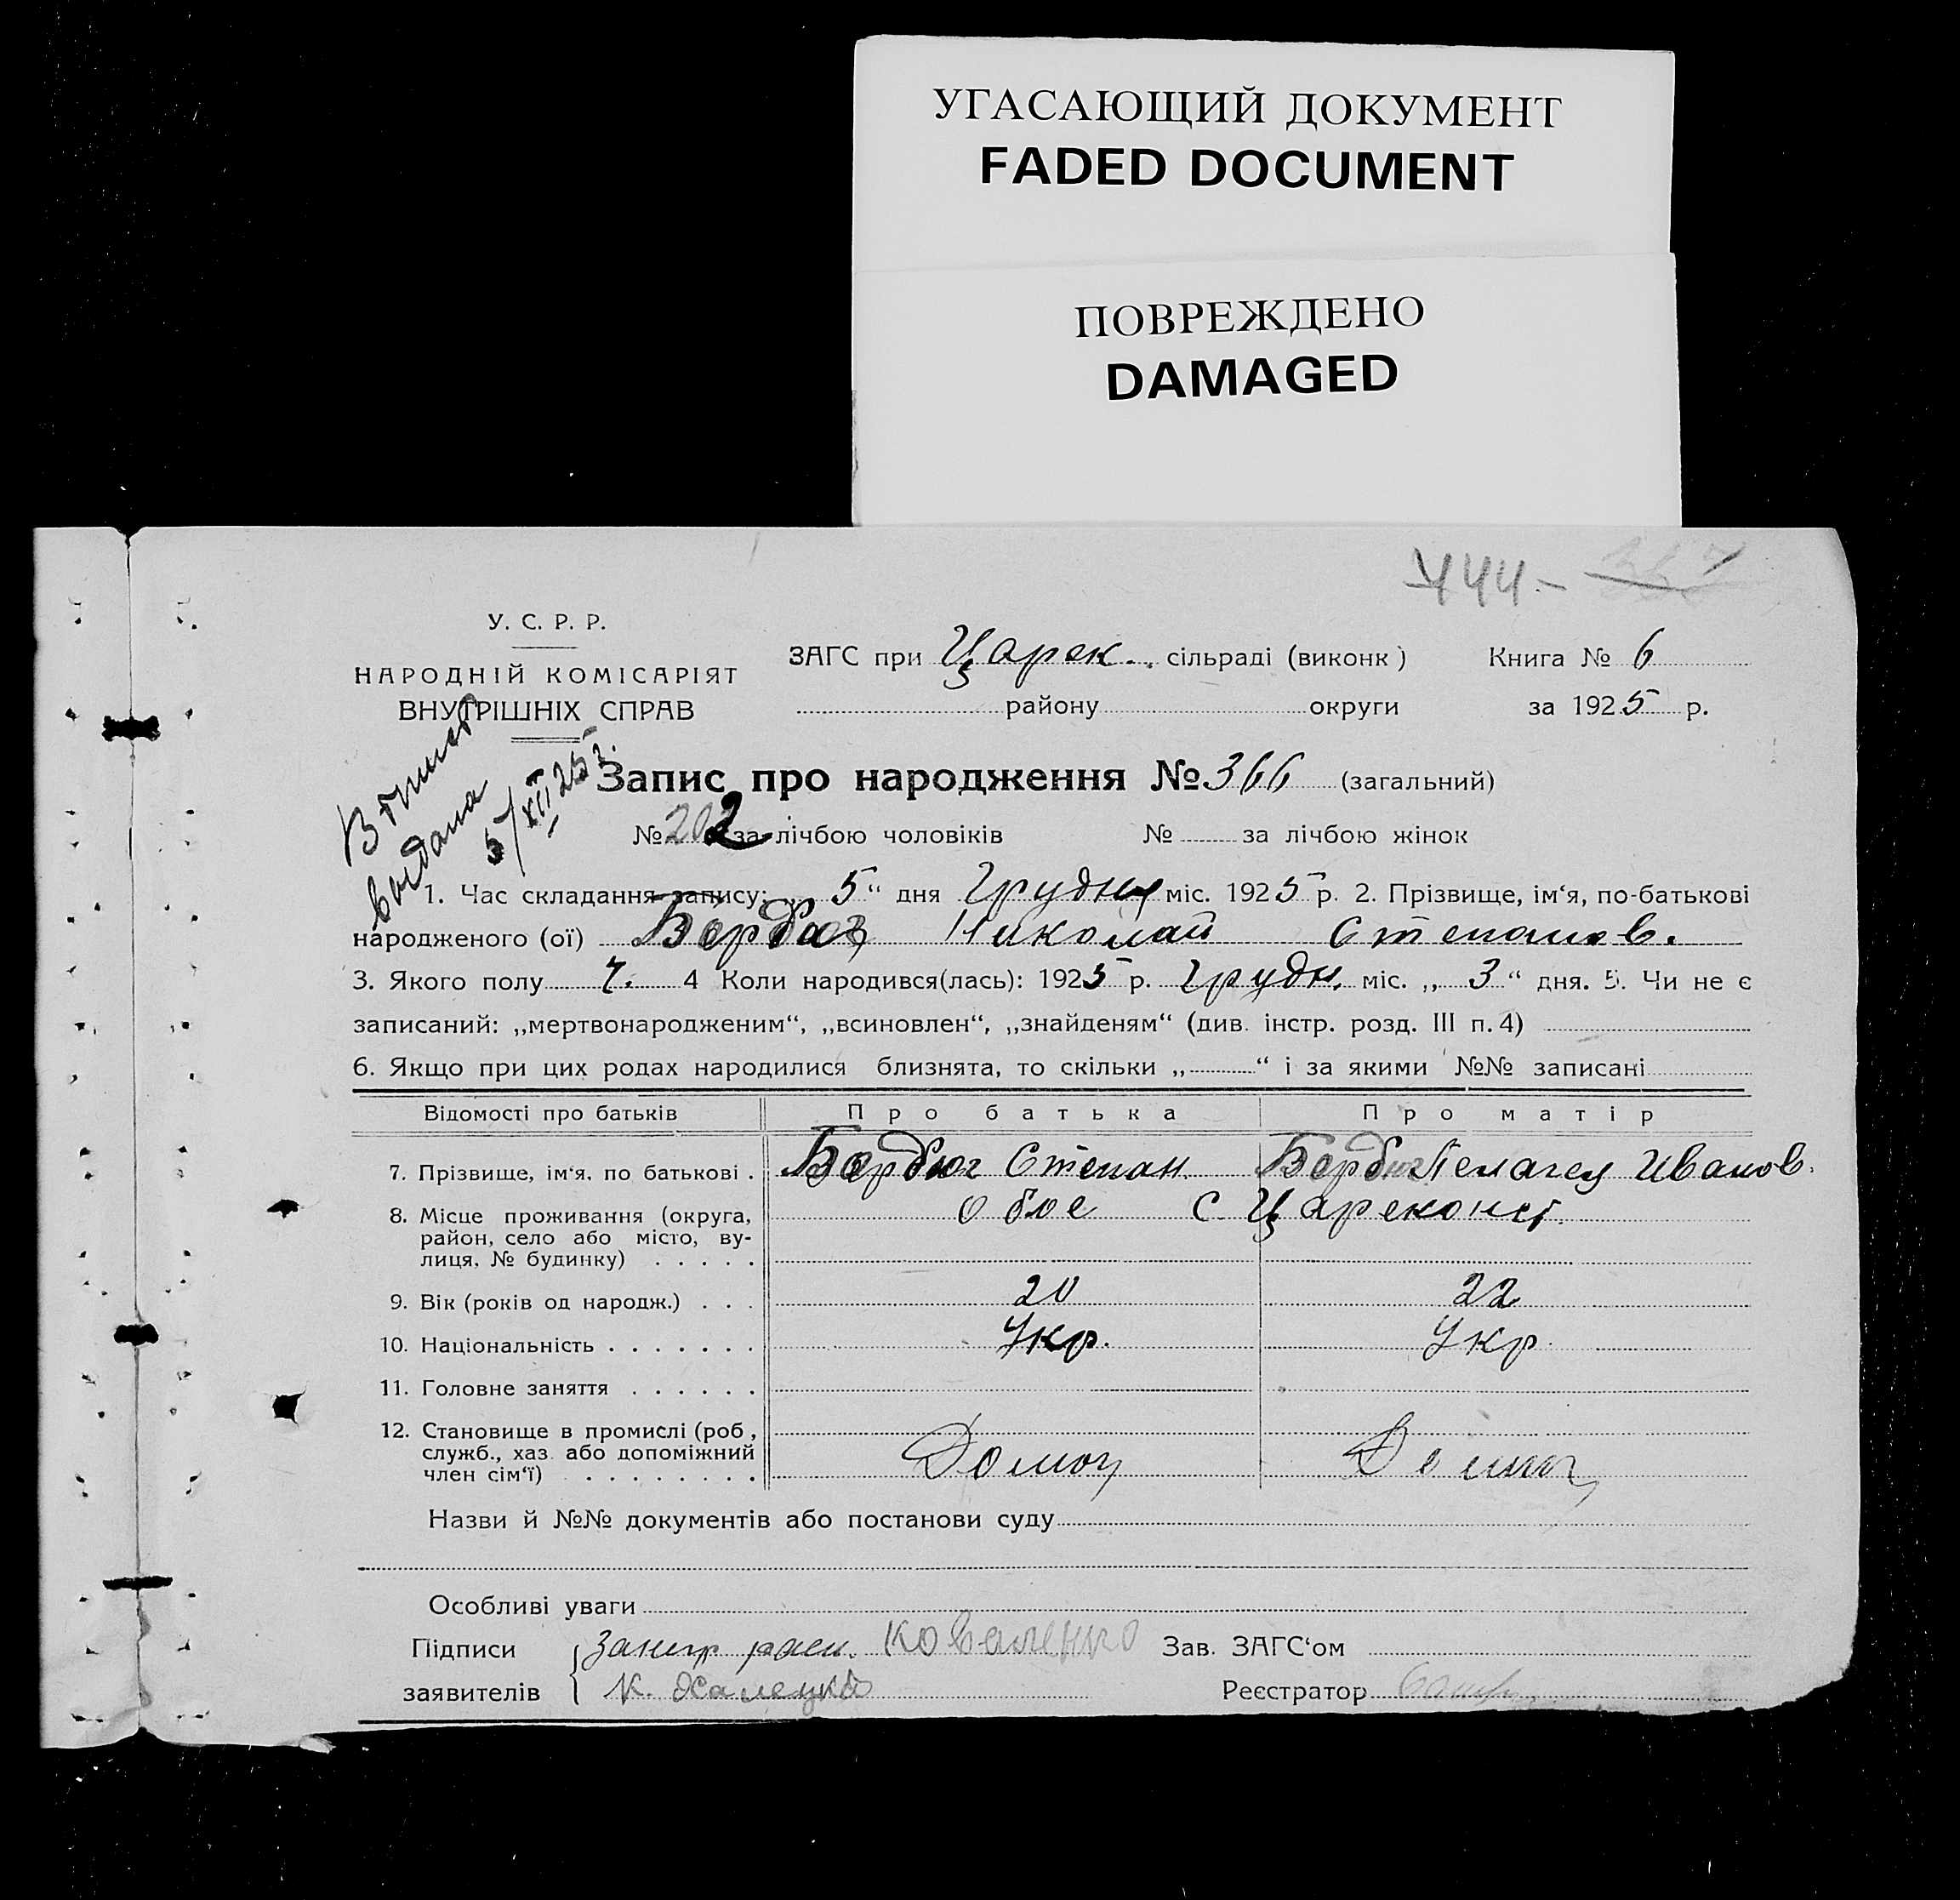 УГАСАЮЩИЙ ДОКУМЕНТ
FADED DOCUMENT
ПОВРЕЖДЕНО
DAMAGED
444 –
У. С. Р. Р.
НАРОДНІЙ КОМІСАРІЯТ
ВНУТРІШНІХ СПРАВ
ЗАГС при Царек. сільраді (виконк)
Книга № 6
району округи
за 1925 р.
выдана
5/XII 25 г.
Запис про народження № 366 (загальний)
№ 202 за лічбою чоловіків № за лічбою жінок
1. Час складання запису: „ 5 “ дня Грудня міс. 1925 р. 2. Прізвище, ім‘я, по-батькові
народженого (ої) Николай Степанов.
3. Якого полу Ч. 4 Коли народився(лась): 1925 р. Грудн. міс. „ 3 “ дня. 5. Чи не є
записаний: „мертвонародженим“, „всиновлен“, „знайденям“ (див. інстр. розд. III п. 4)
6. Якщо при цих родах народилися близнята, то скільки „ “ і за якими №№ записані
Відомості про батьків Про батька Про матір
7. Прізвище, ім‘я, по батькові . Степан Пелагея Иванов.
8. Місце проживання (округа, обое с Цареконст.
район, село або місто, ву-
лиця, № будинку) . . . . .
9. Вік (років од народж.) . . . 20 22
10. Національність . . . . . . . Укр. Укр.
11. Головне заняття . . . . . .
12. Становище в промислі (роб,
служб., хаз. або допоміжний
член сім‘ї) . . . . . . . .
Назви й №№ документів або постанови суду
Особливі уваги
Підписи Коваленко Зав. ЗАГС‘ом
заявителів К. Реєстратор